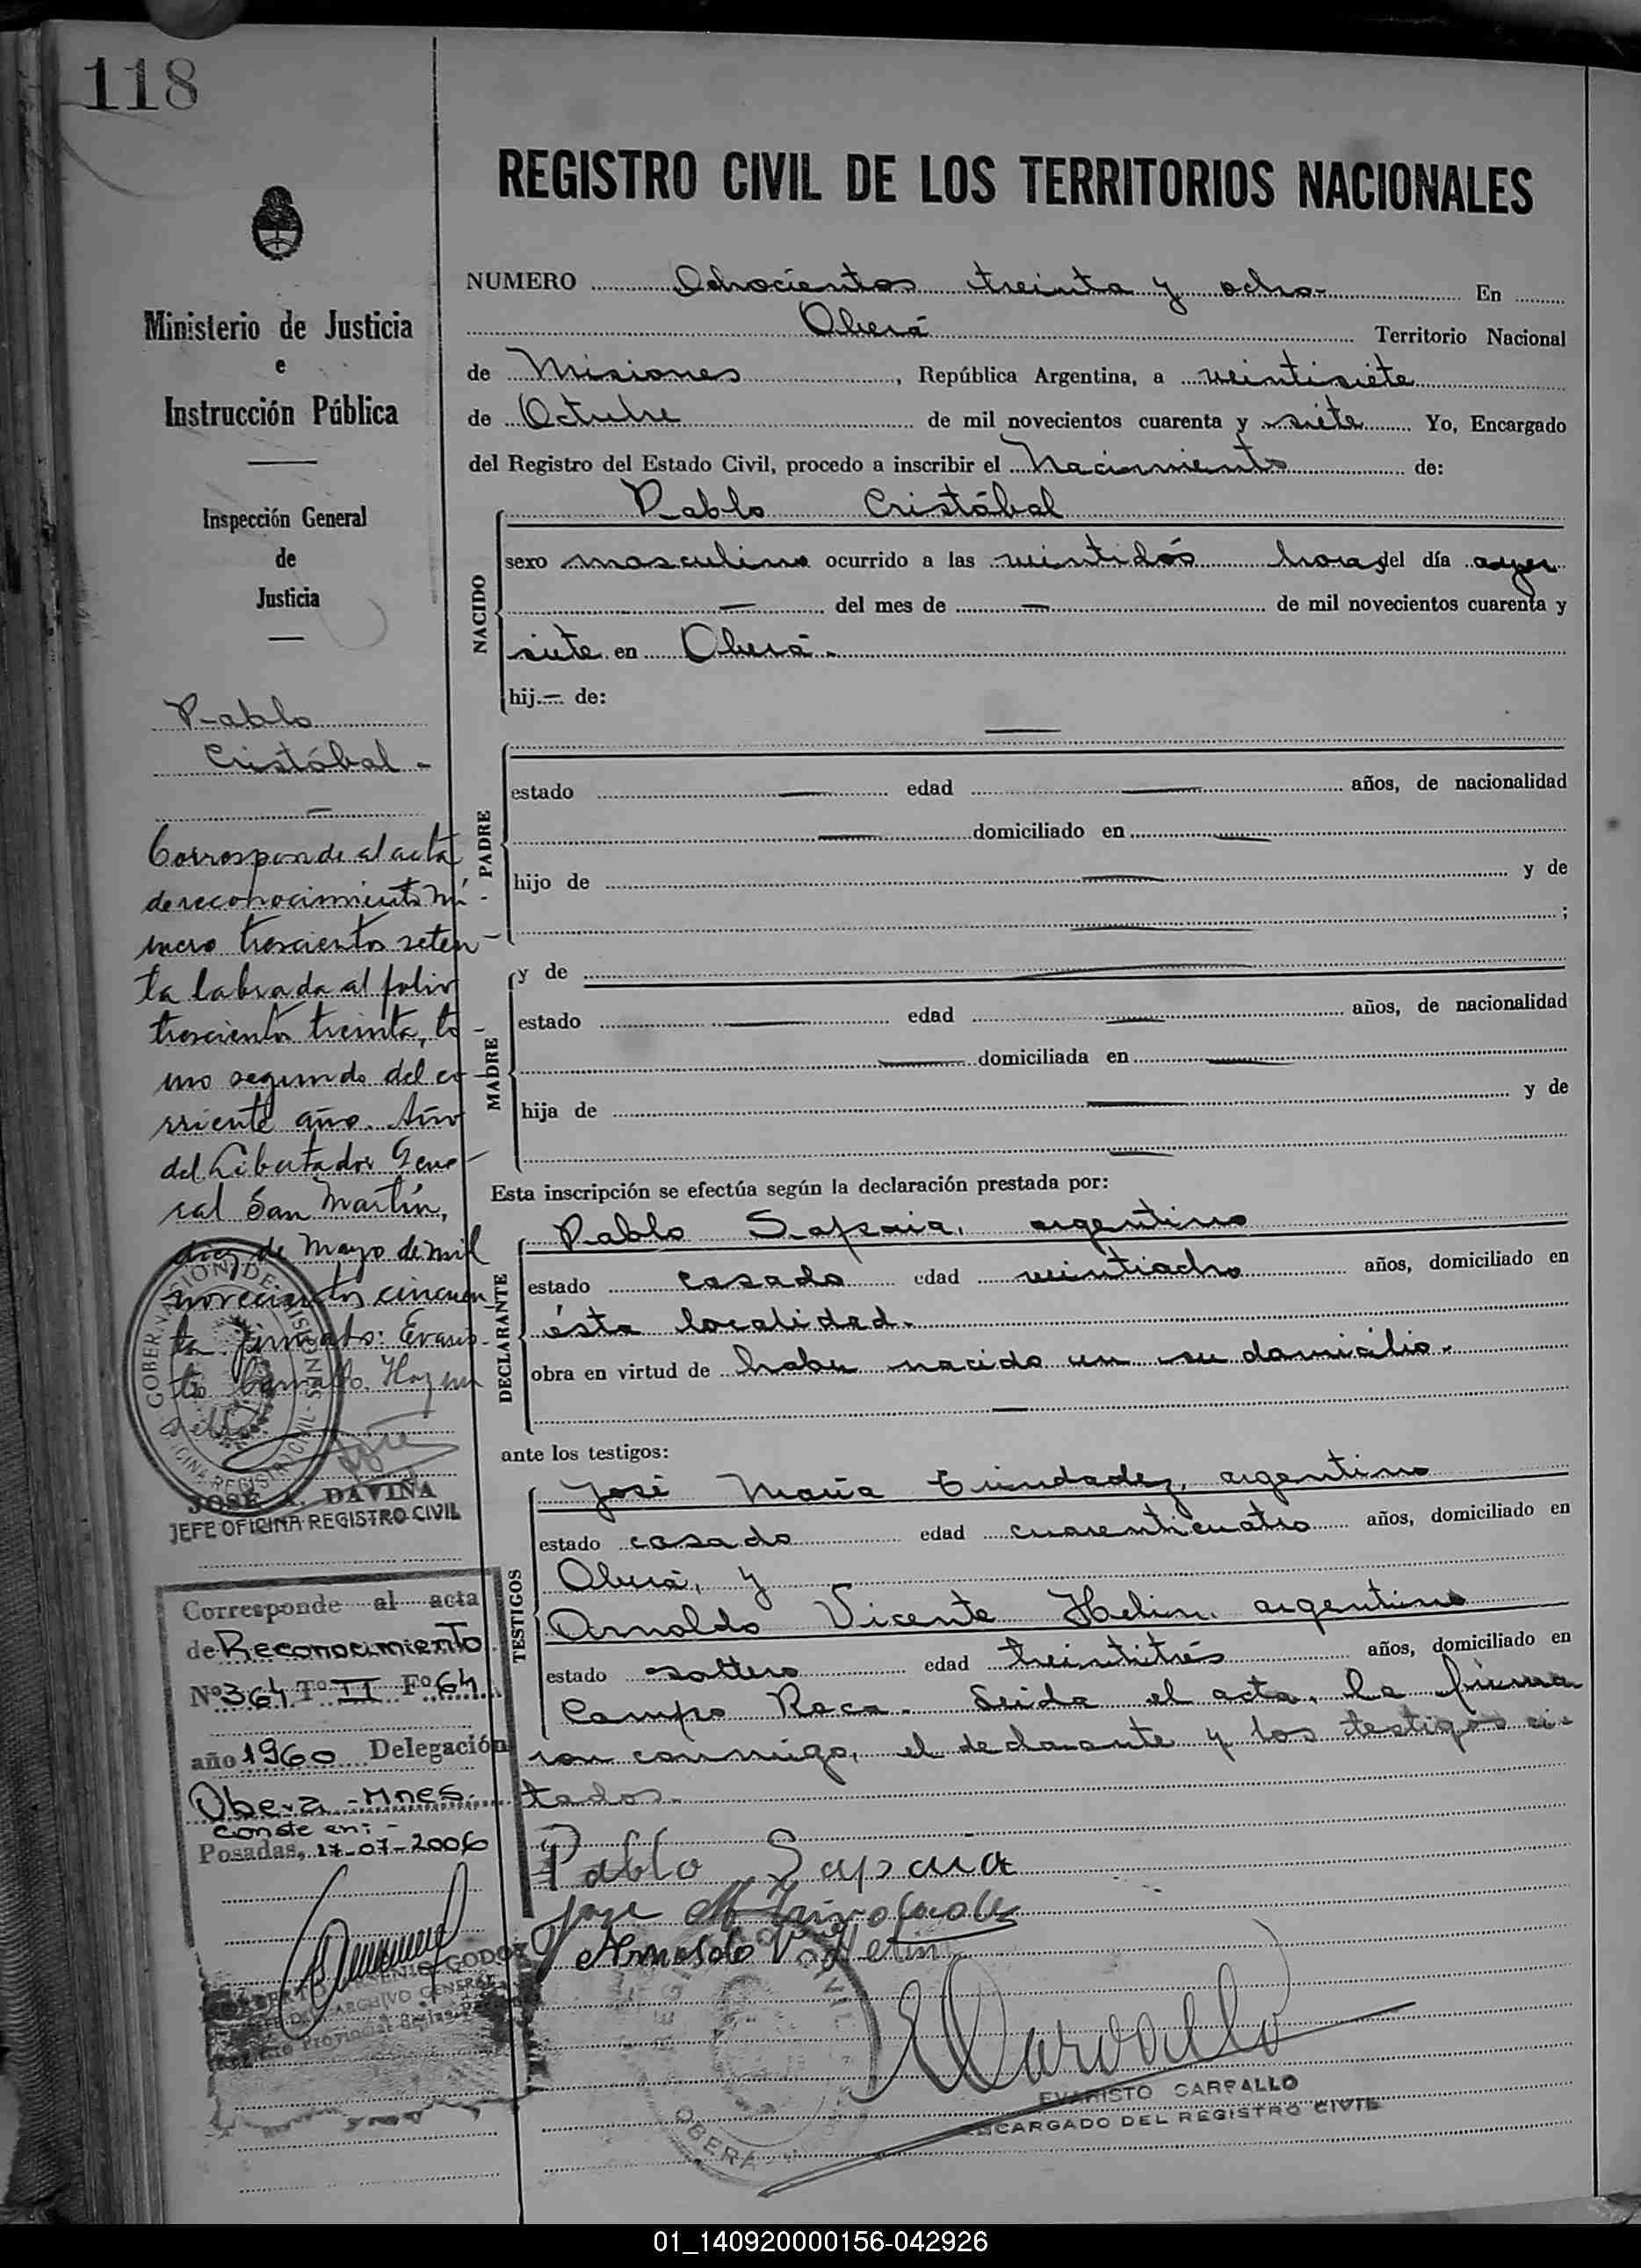 118
REGISTRO CIVIL DE LOS TERRITORIOS NACIONALES
Ministerio de Justicia
e
Instrucción Pública
Inspección General
de
Justicia
NUMERO Ochocientos treinta y ocho.- En
Oberá Territorio Nacional
de Misiones, República Argentina, a veintisiete
de Octubre de mil novecientos cuarenta y siete Yo, Encargado
del Registro del Estado Civil, procedo a inscribir el Nacimiento de:
NACIDO
Pablo Cristóbal
sexo masculino ocurrido a las veintidós horas del día ayer
— del mes de — de mil novecientos cuarenta y
siete en Oberá.
hij— de:
PADRE
—
estado — edad — años, de nacionalidad
— domiciliado en —
hijo de — y de
— ;
MADRE
y de —
estado — edad — años, de nacionalidad
— domiciliada en —
hija de — y de
—
Esta inscripción se efectúa según la declaración prestada por:
DECLARANTE
Pablo argentino
estado casado edad veintiocho años, domiciliado en
ésta localidad.
obra en virtud de haber nacido en su domicilio.
—
ante los testigos:
TESTIGOS
José María Trindadez, argentino
estado casado edad cuarenticuatro años, domiciliado en
Oberá, y
Arnoldo Vicente Helin, argentino
estado soltero edad treintitrés años, domiciliado en
Campo Roca. Leida el acta, la firma
ron conmigo, el declarante y los testigos ci-
tados.-
Pablo
Jose M
Arnoldo V. Helin
EVARISTO CARBALLO
ENCARGADO DEL REGISTRO CIVIL
OBERA
Pablo
Cristóbal.-
—
Corresponde al acta
de reconocimiento nú-
mero trescientos seten-
ta labrada al folio
trescientos treinta, to-
mo segundo del co-
rriente año. Año
del Libertador Gene-
ral San Martín,
diez de Mayo de mil
novecientos cincuen
ta. firmado: Evaris-
to Carvallo. Hay un
sello
GOBERNACION DE MISIONES
OFICINA REGISTRO CIVIL
JOSÉ A. DAVIÑA
JEFE OFICINA REGISTRO CIVIL
Corresponde al acta
de Reconocimiento
Nº 364 Tº II Fº 64
año 1960 Delegación
Oberá - Mnes.
Conste en: -
Posadas, 17-07-2006
GODOY
ARCHIVO GENERAL
Provincial
01_140920000156-042926